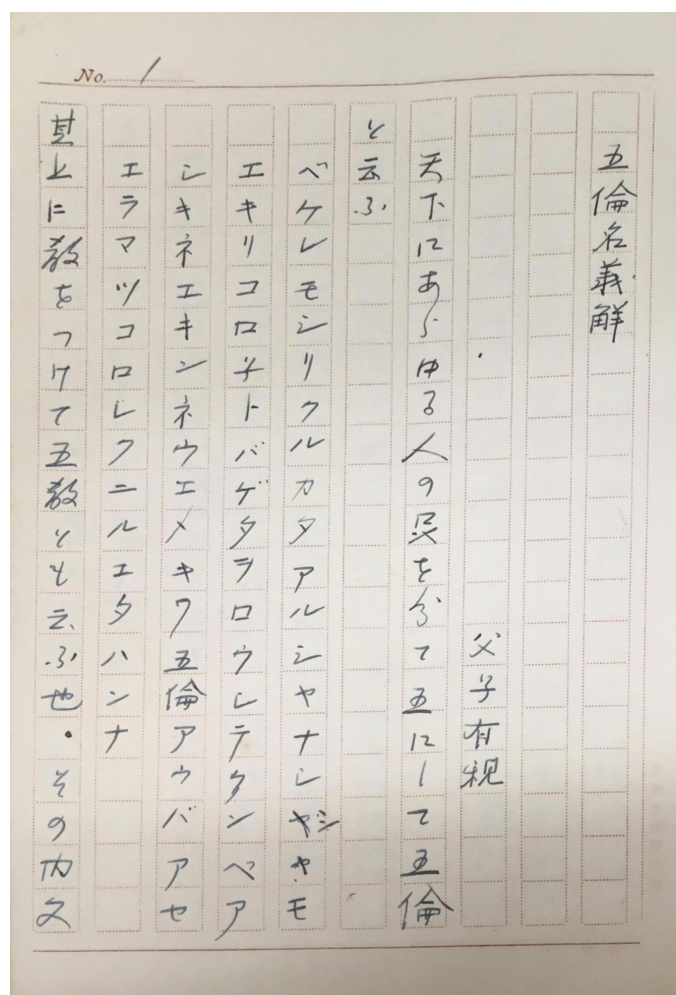 No. 1
五倫名義解
父子有親
天下にあらゆる人の品を分て五にして五倫
と云ふ
ベケレモシリクルカタアルシヤナシヤシヤモ
エキリコロ子トバゲタラロウレテタンベア
シキネエキンネウエメキワ五倫アウバアセ
エラマツコロレクニルエタハンナ
其上に教をつけて五教とも云ふ也・その内父